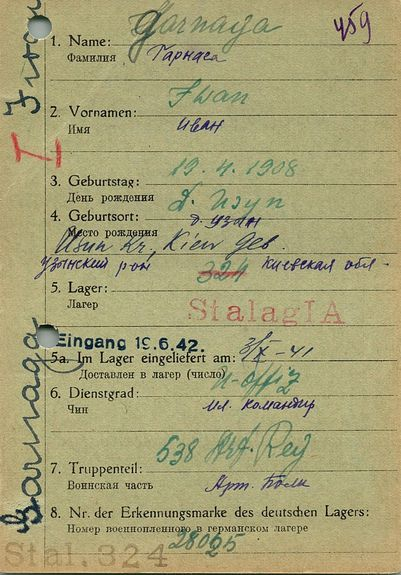 Garnaga
459
1. Name:
Фамилия Гарнага
Iwan
2. Vornamen:
Имя Иван
19.4.1908
3. Geburtstag:
День рождения
4. Geburtsort: д. Узин
Место рождения
Usin Kr, Kiew Geb.
Узинский рон Киевская обл-
324
5. Lager:
Лагер
Stalag IA
Eingang 19.6.42.
5a. Im Lager eingeliefert am: 3/IX-41
Доставлен в лагер (число)
U-Offiz
6. Dienstgrad:
Чин Мл. Командир
538 Art. Reg
7. Truppenteil:
Воинская часть Арт. Полк
8. Nr. der Erkennungsmarke des deutschen Lagers:
Номер военнопленного в германском лагере
Stal. 324
Garnaga